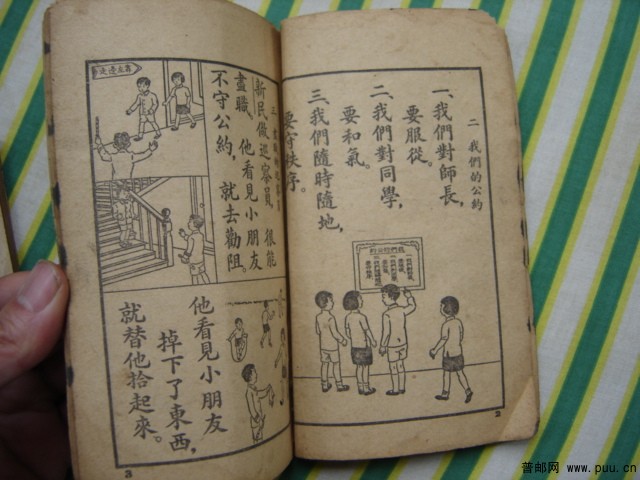 二 我們的公約
一、我們對師長，
要服從。
二、我們對同學，
要和氣。
三、我們隨時隨地，
要守秩序。
2
靠左邊走
三
新民做巡察員，很能
盡職，他看見小朋友
不守公約，就去勸阻。
他看見小朋友
掉下了東西，
就替他拾起來。
3
普邮网 www.puu.cn